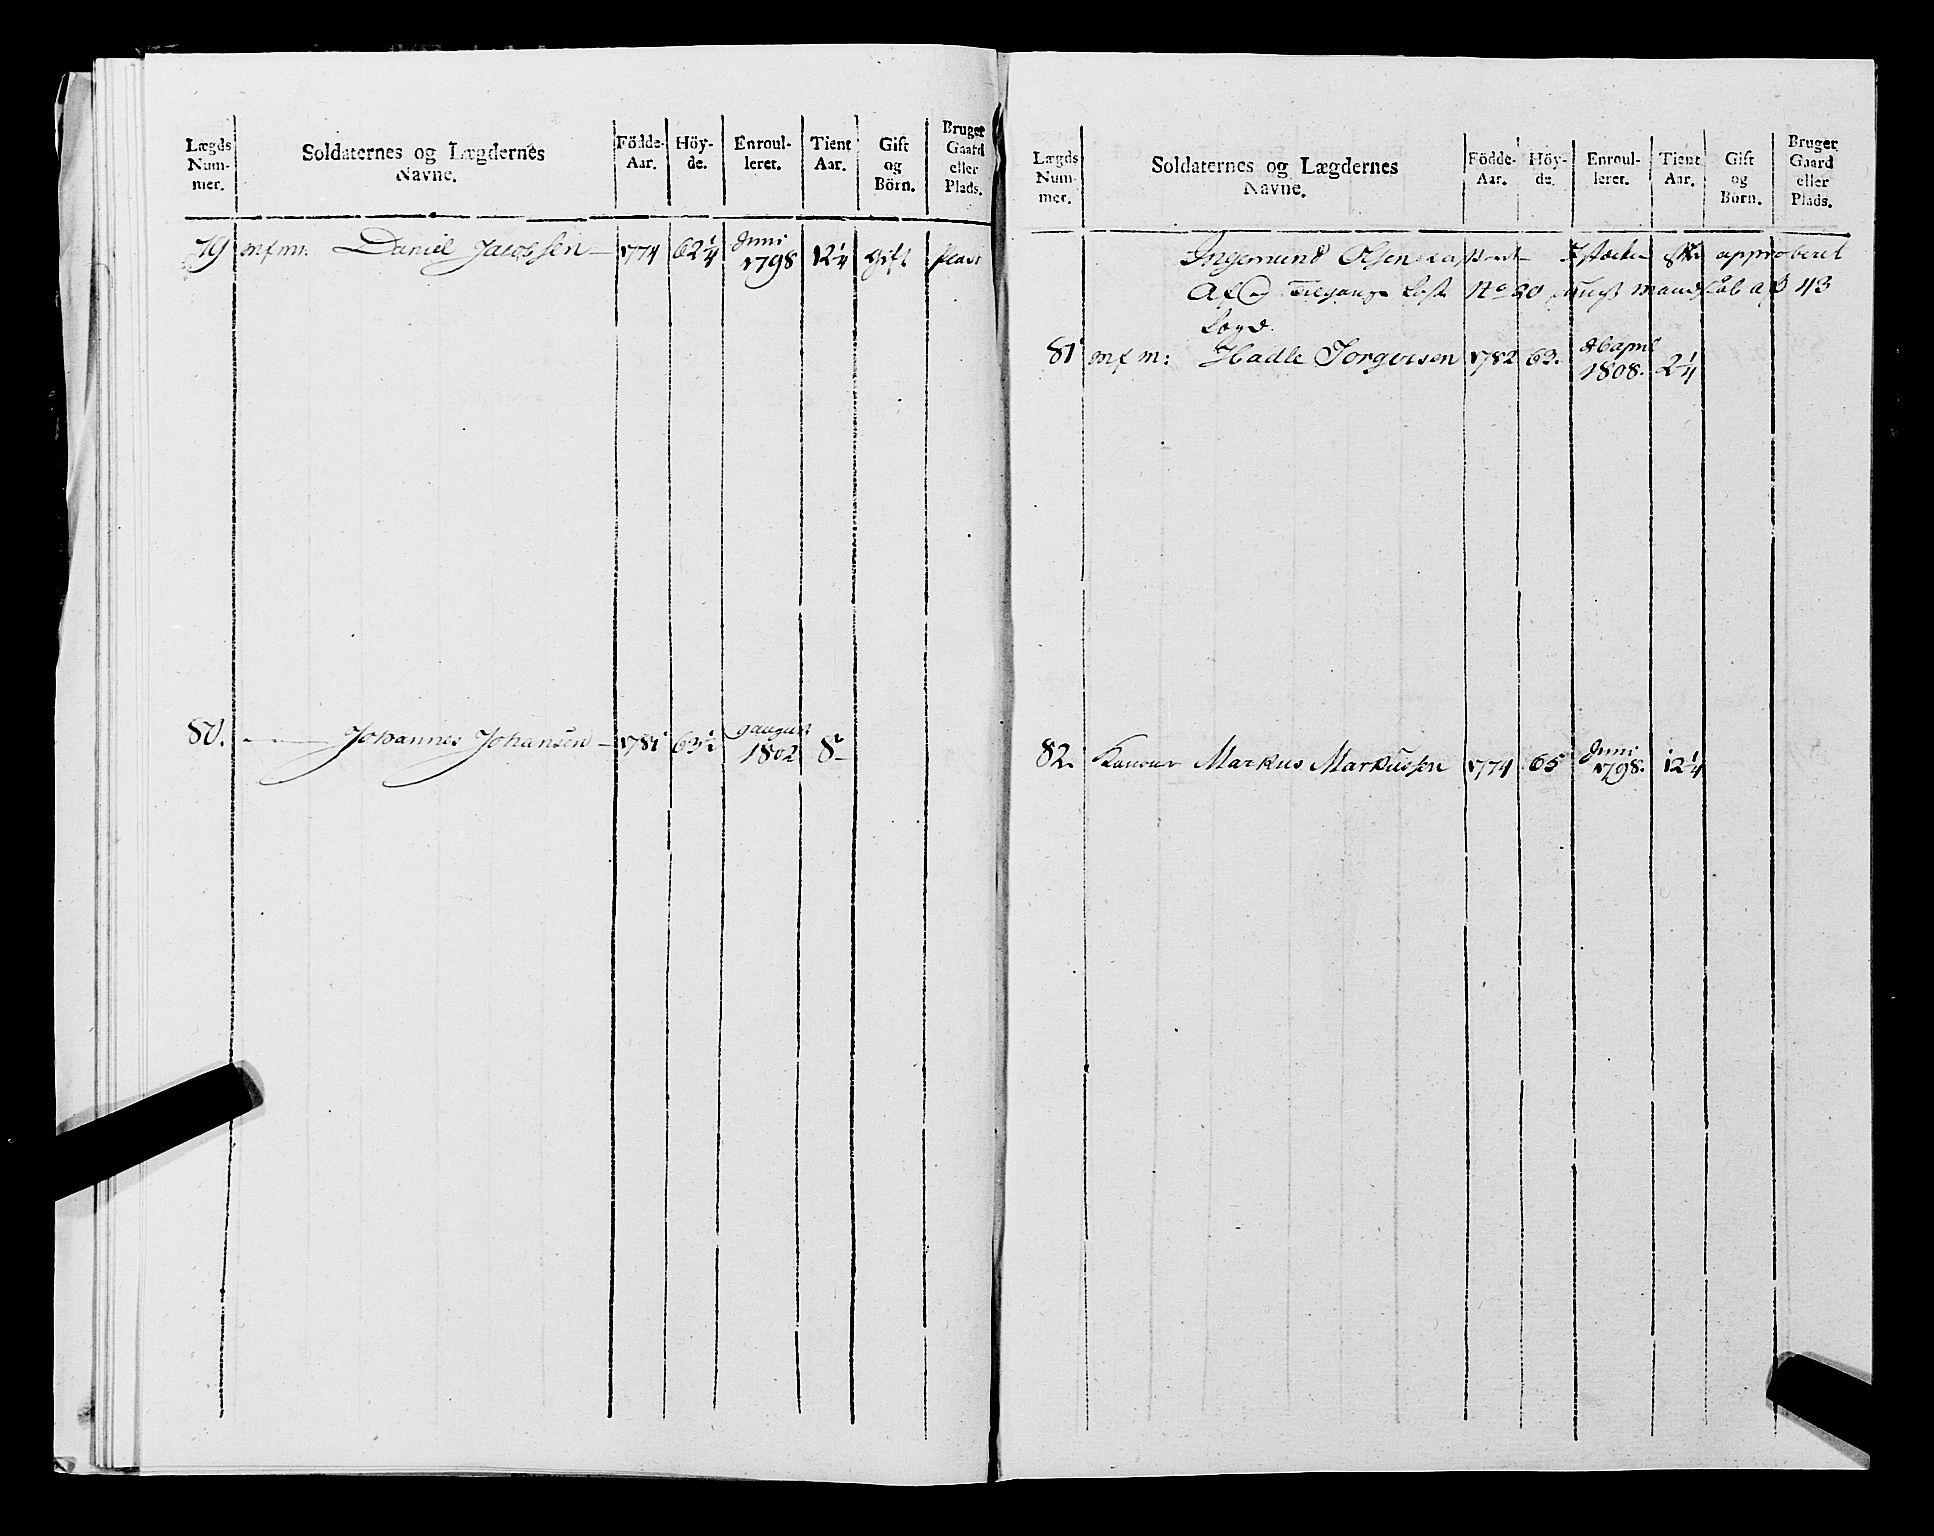 Lægds Num- mer.
Soldaternes og Lægdernes Navne.
Födde- Aar.
Höy- de.
Enroul- leret.
Tient Aar.
Gift og Börn.
Bruger Gaard eller Plads.
79 mfm: Daniel Jacobsen 1774 62¼ Juni 1798 12¼ gift Plads
80. Johannes Johansen 1781 63½ 9 august 1802 8
Lægds Num- mer.
Soldaternes og Lægdernes Navne.
Födde- Aar.
Höy- de.
Enroul- leret.
Tient Aar.
Gift og Börn.
Bruger Gaard eller Plads.
Ingemund Olsen approberet
Af og Tilgangs List No 20 ungt mandskab af 43
81 mfm: Hadle Torgersen 1782 63. 26 april 1808. 2¼
82. Markus Markussen 1774 65 Juni 1798. 12¼